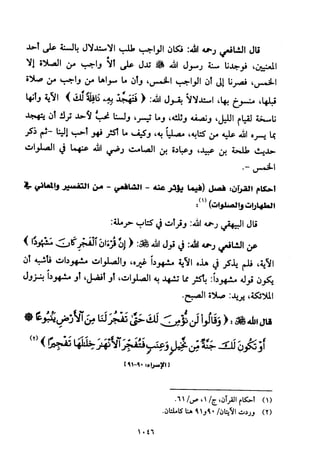 قال الشافعي رحمه الله: فكان الواجب طلب الاستدلال بالسنة على أحد
المعنيين، فوجدنا سنة رسول الله ﷺ تدل على ألا واجب من الصلاة إلا
الخمس، فصرنا إلى أن الواجب الخمس، وأن ما سواها من واجب من صلاة
قبلها، منسوخ بها، استدلالاً بقول الله: ﴿ فَتَهَجَّدْ بِهِ نَافِلَةً لَكَ ﴾ الآية وأنها
ناسخة لقيام الليل، ونصفه وثلثه، وما تيسر، ولسنا نحب لأحد ترك أن يتهجد
بما يسره الله عليه من كتابه، مصلياً به، وكيف ما أكثر فهو أحب إلينا -ثم ذكر
حديث طلحة بن عبيد، وعبادة بن الصامت رضي الله عنهما في الصلوات
الخمس -.
أحكام القرآن، فصل (فيما يؤثر عنه - الشافعي - من التفسير والمعاني في
الطهارات والصلوات) (١):
قال البيهقي رحمه الله: وقرأت في كتاب حرملة:
عن الشافعي رحمه الله: في قول الله ﷻ: ﴿ إِنَّ قُرْءَانَ الْفَجْرِ كَانَ مَشْهُودًا ﴾
الآية، فلم يذكر في هذه الآية مشهوداً غيره، والصلوات مشهودات فأشبه أن
يكون قوله مشهوداً: بأكثر مما تشهد به الصلوات، أو أفضل، أو مشهوداً بنزول
الملائكة، يريد: صلاة الصبح.
قال الله ﷻ: ﴿ وَقَالُوا لَنْ نُؤْمِنَ لَكَ حَتَّى تَفْجُرَ لَنَا مِنَ الْأَرْضِ يَنْبُوعًا ۝
أَوْ تَكُونَ لَكَ جَنَّةٌ مِنْ نَخِيلٍ وَعِنَبٍ فَتُفَجِّرَ الْأَنْهَارَ خِلَالَهَا تَفْجِيرًا ﴾ (٢)
[الإسراء: ٩٠-٩١]
(١) أحكام القرآن، ج/ ١، ص/ ٦١.
(٢) وردت الآيتان/ ٩٠ و٩١ هنا كاملتان.
١٠٤٦